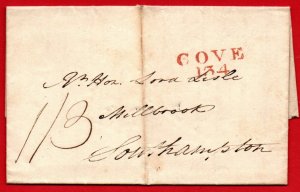 COVE
134
Rt. Hon. Lord Lisle
1/3
Millbrook
Southampton